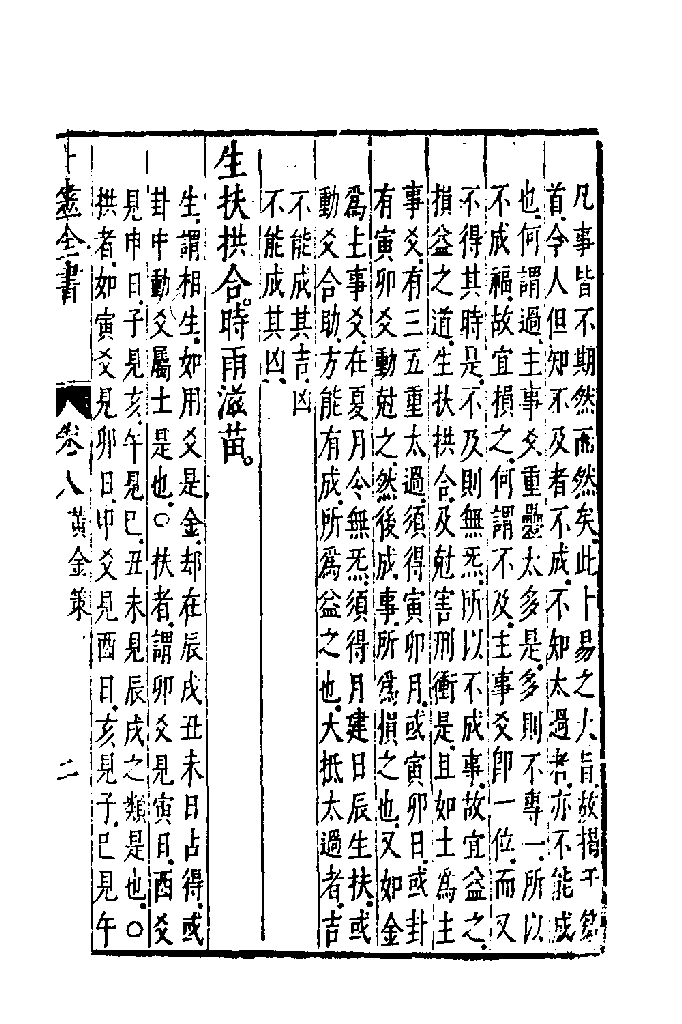 凡事皆不期然而然矣.此卜易之大旨.故揭于篇
首.今人但知不及者不成.不知太過者.亦不能成
也.何謂過.主事爻重疊太多是.多則不專一.所以
不成福.故宜損之.何謂不及.主事爻卽一位.而又
不得其時是.不及則無炁.所以不成事.故宜益之.
損益之道.生扶拱合.及尅害刑衝是.且如土爲主
事爻.有三五重太過.須得寅卯月.或寅卯日.或卦
有寅卯爻動尅之.然後成事.所爲損之也.又如金
爲主事爻.在夏月令無炁.須得月建日辰生扶.或
動爻合助.方能有成.所爲益之也.大抵太過者.吉
不能成其吉.凶
不能成其凶.
生扶拱合。時雨滋苗。
生.謂相生.如用爻是金.却在辰戌丑未日占得.或
卦中動爻屬土是也.○扶者.謂卯爻見寅日.酉爻
見申日.子見亥.午見巳.丑未見辰戌之類是也.○
拱者.如寅爻見卯日.申爻見酉日.亥見子.巳見午
卜筮全書 卷八 黃金策 二